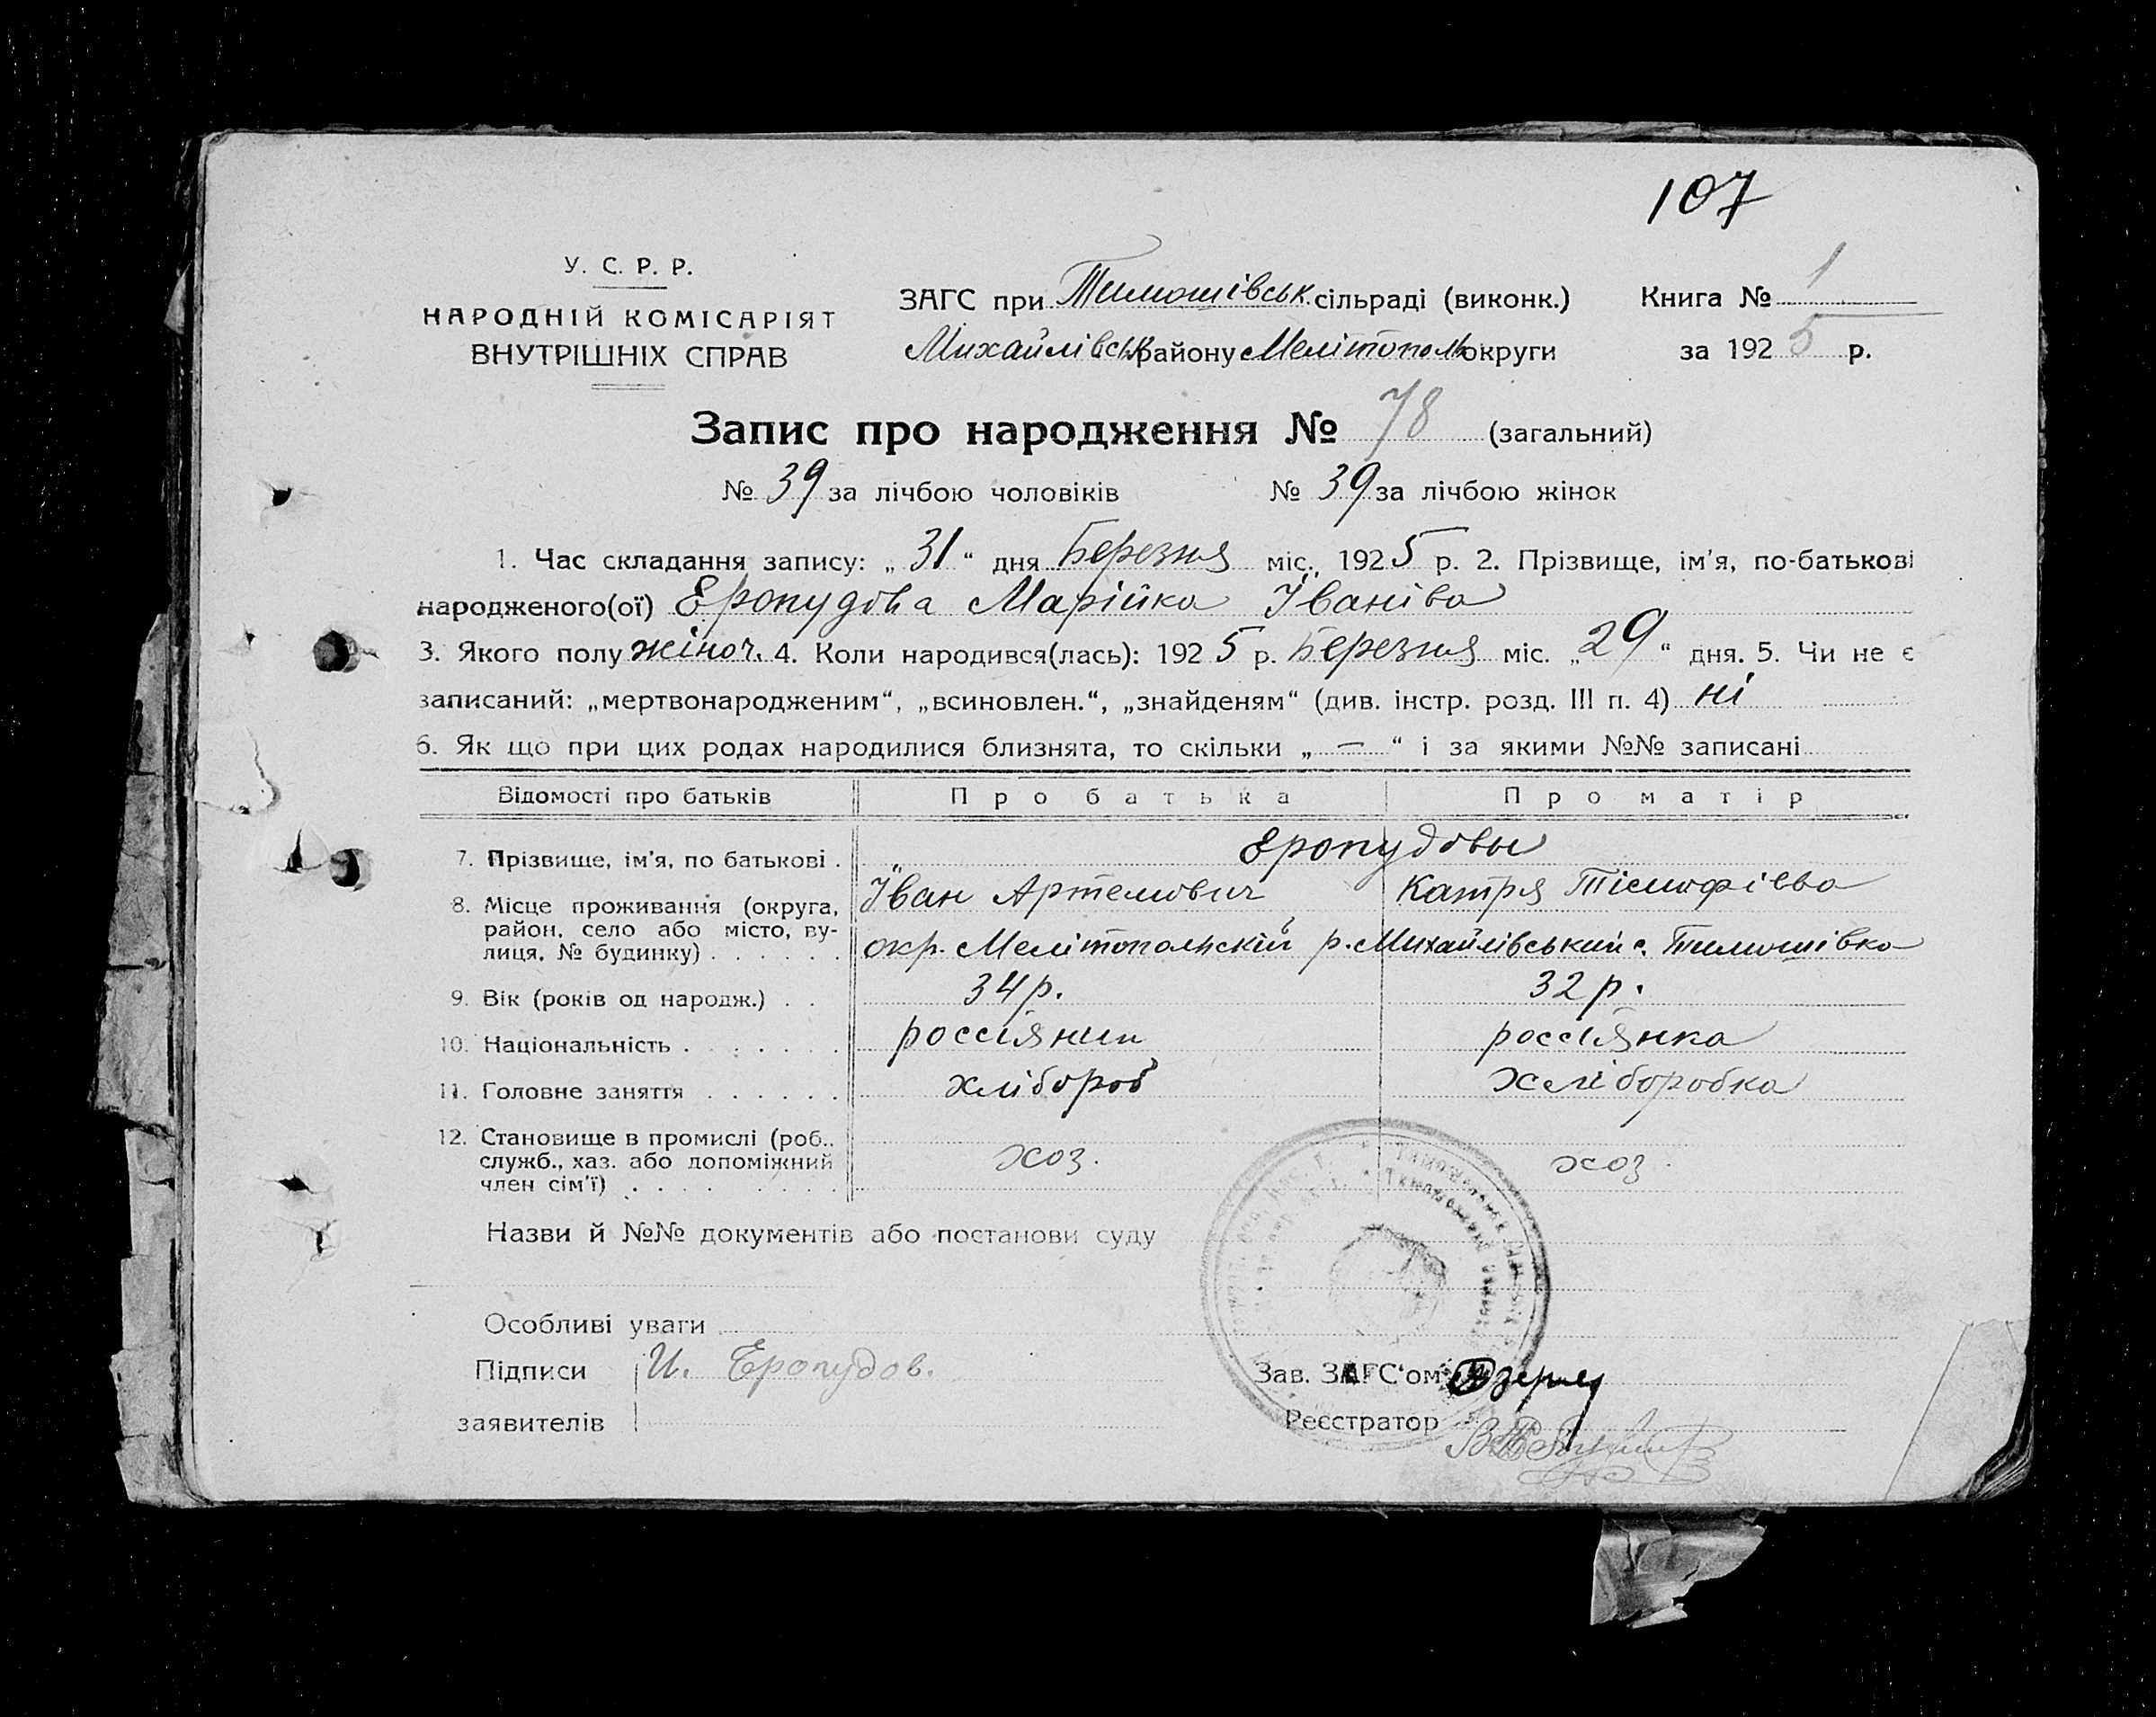 107
У. С. Р. Р.
НАРОДНІЙ КОМІСАРІЯТ
ВНУТРІШНІХ СПРАВ
ЗАГС при Тимошівськ. сільраді (виконк.)
Михайлівськ району Мелітополь округи
Книга № 1
за 1925 р.
Запис про народження № 78 (загальний)
№ 39 за лічбою чоловіків № 39 за лічбою жінок
1. Час складання запису: „31“ дня Березня міс., 1925 р. 2. Прізвище, ім'я, по-батькові
народженого(ої) Еропудова Марійка Іванівa
3. Якого полу жіноч. 4. Коли народився(лась): 1925 р. Березня міс. „29“ дня. 5. Чи не є
записаний: „мертвонародженим“, „всиновлен.“, „знайденям“ (див. інстр. розд. III п. 4) ні
6. Як що при цих родах народилися близнята, то скільки „—“ і за якими №№ записані
Відомості про батьків Про батька Про матір
7. Прізвище, ім'я, по батькові . Еропудовы
Іван Артемович Катря Тімофіева
8. Місце проживання (округа,
район, село або місто, ву-
лиця, № будинку) . . . . . . окр. Мелітопольскій р. Михайлівський с. Тимошівка
9. Вік (років од народж.) . . 34 р. 32 р.
10. Національність . . . . . . . россіянин россіянка
11. Головне заняття . . . . . . хлібороб хліборобка
12. Становище в промислі (роб.,
служб., хаз. або допоміжний
член сім'ї) . . . . . . . . . хоз. хоз.
Назви й №№ документів або постанови суду
Особливі уваги
Підписи И. Еропудов.
заявителів
Зав. ЗАГС'ом
Реєстратор